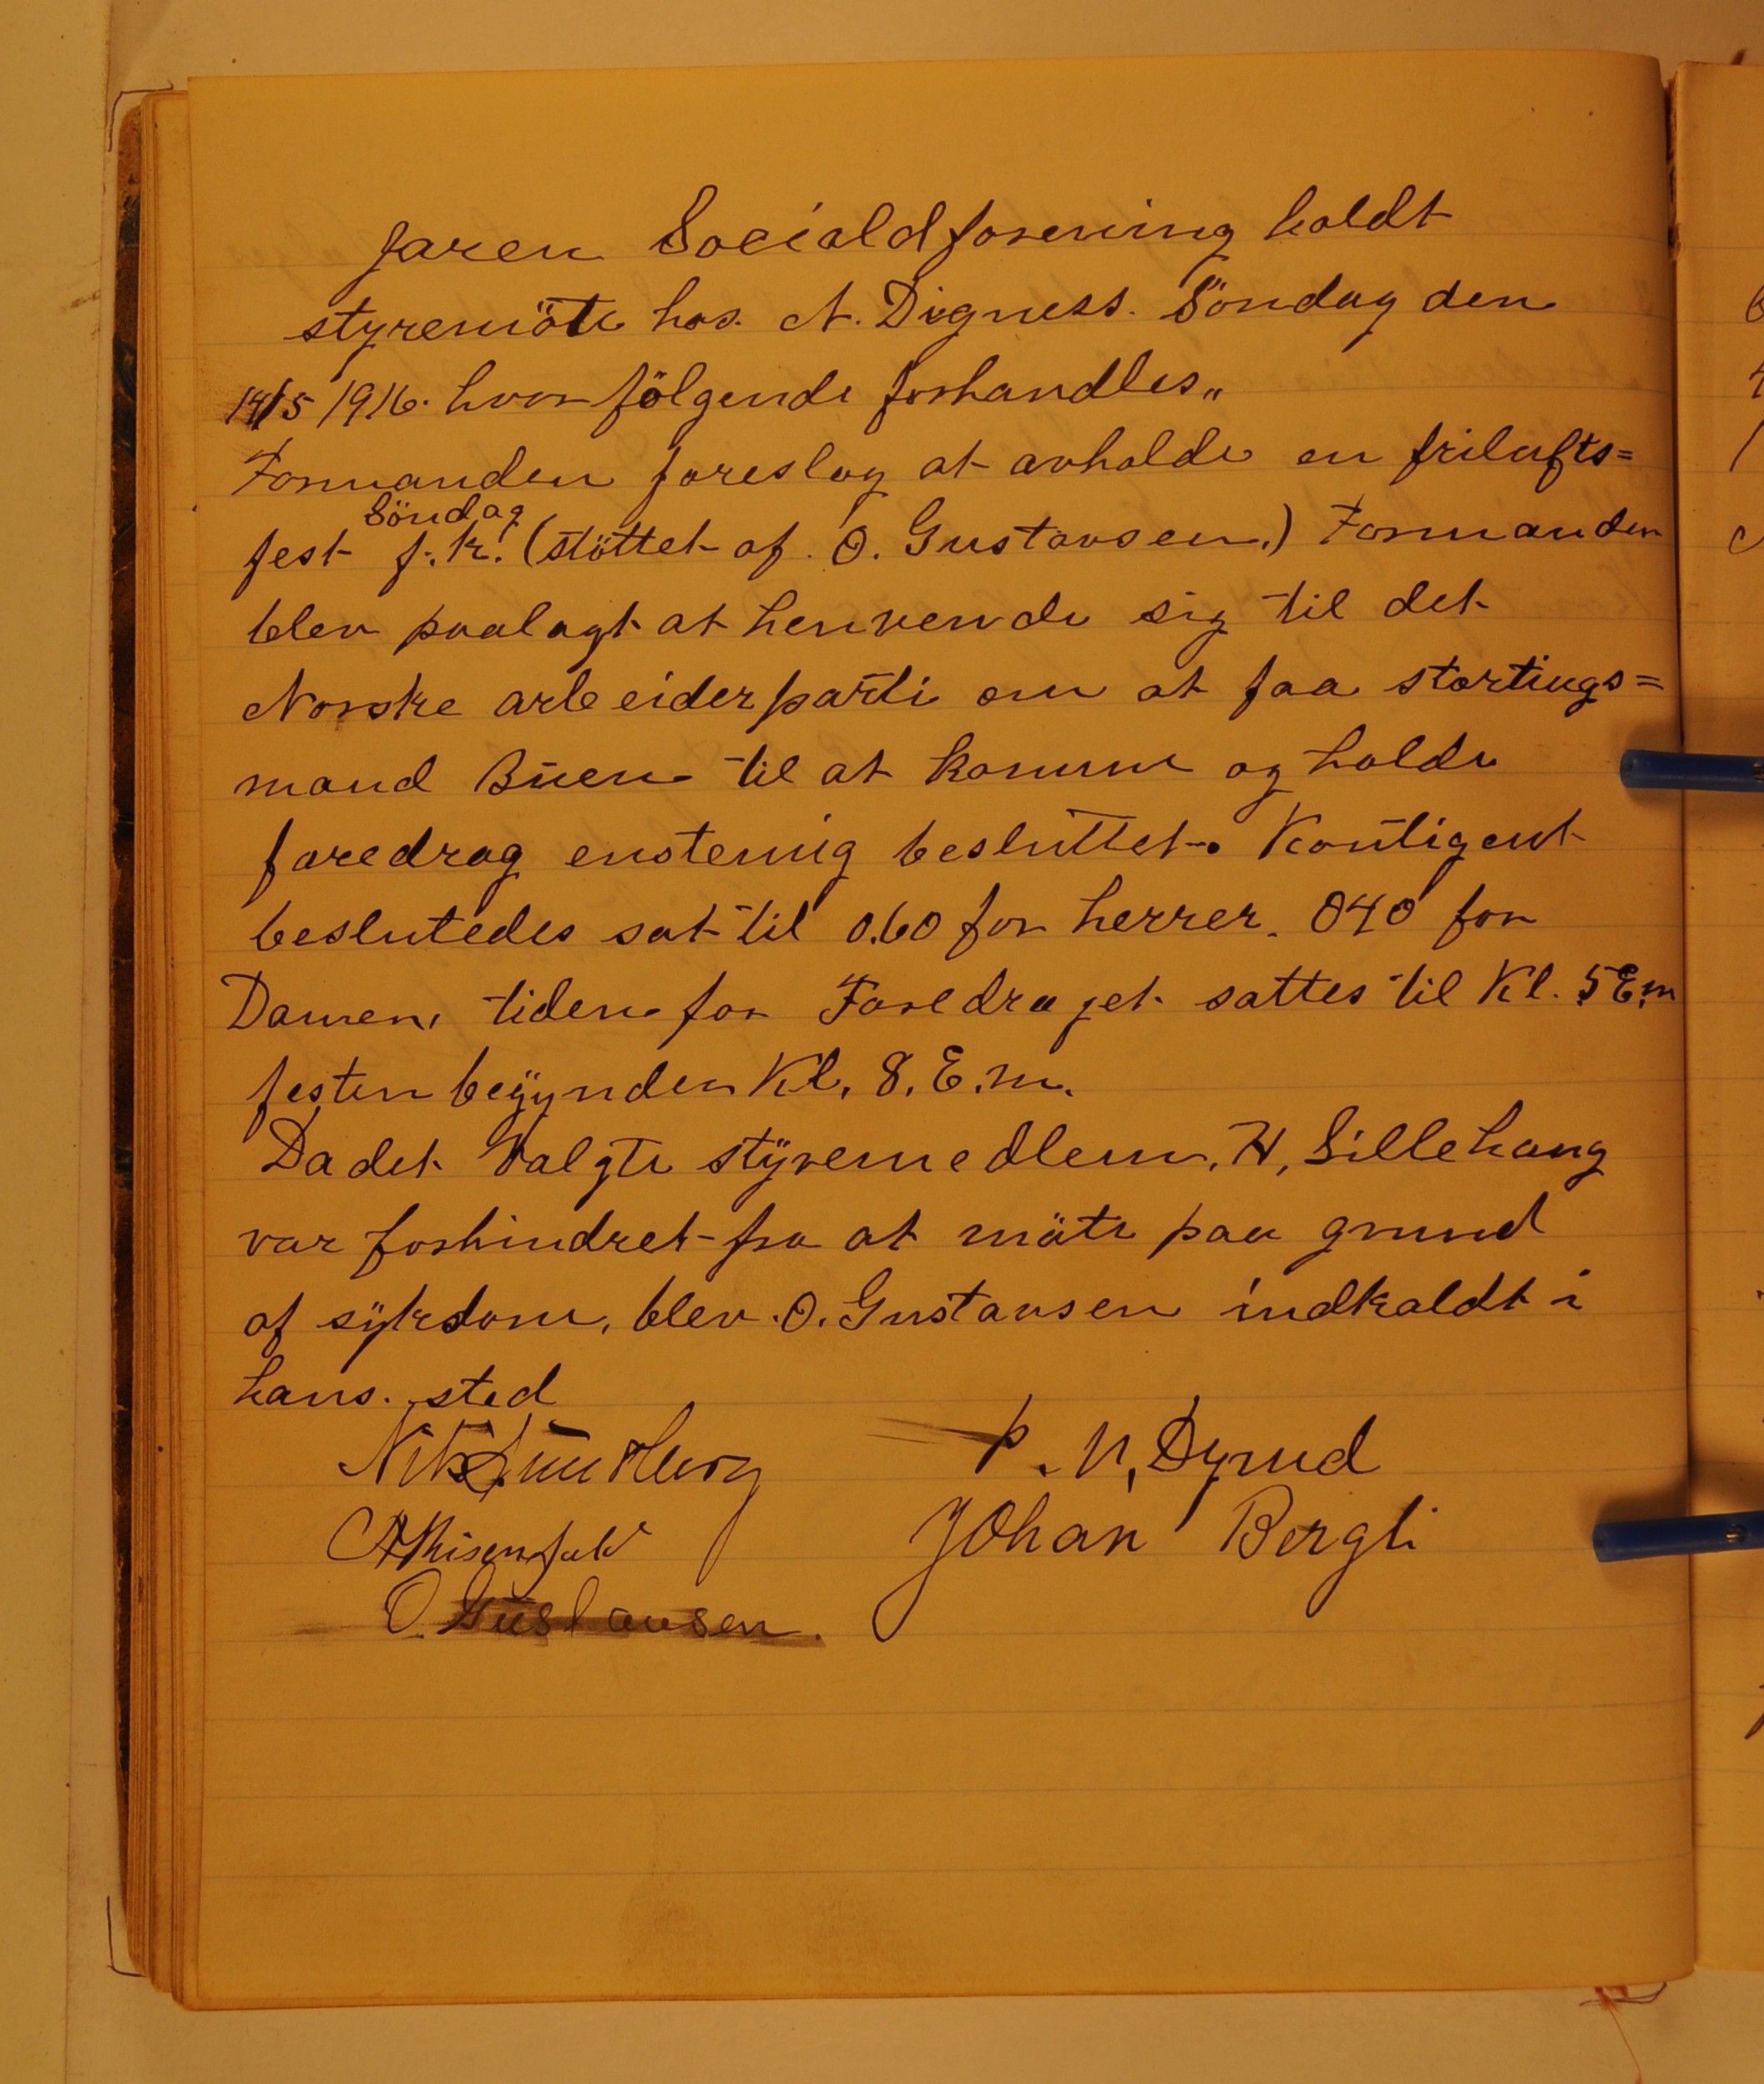 Jaren Sociald forening holdt
styremöte hos. A. Digness. Söndag den
14/5 1916. hvor fölgende forhandles„
Formanden foreslog at avholde en frilufts=
Söndag
fest f. k. (stöttet af. O. Gustavsen.) Formanden
blev paalagt at henvende sig til det
Norske arbeiderparti om at faa stortings=
mand Buen til at komme og holde
foredrag enstemig besluttet. Kontigent
beslutedes sat til 0.60 for herrer. 040 for
Damer, tiden for Foredraget sattes til Kl. 5 E.m
festen begynder Kl. 8. E.m.
Da det valgte styremedlem. H. Lillehaug
var forhindret fra at möte paa grund
af sykdom, blev O. Gustavsen indkaldt i
hans. sted
P. N. Dyrud
Johan Bergli
O. Gustavsen.